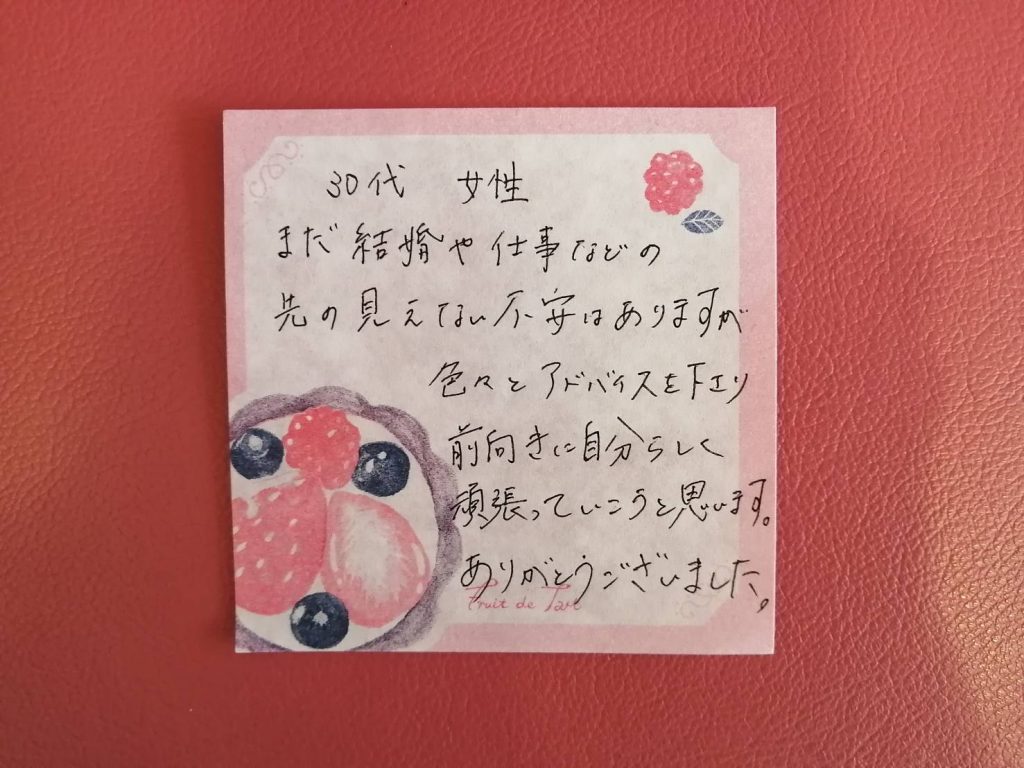 30代 女性
まだ結婚や仕事などの
先の見えない不安はありますが
色々とアドバイスを下エリ
前向きに自分らしく
頑張っていこうと思います。
ありがとうございました。
Fruit de Tart